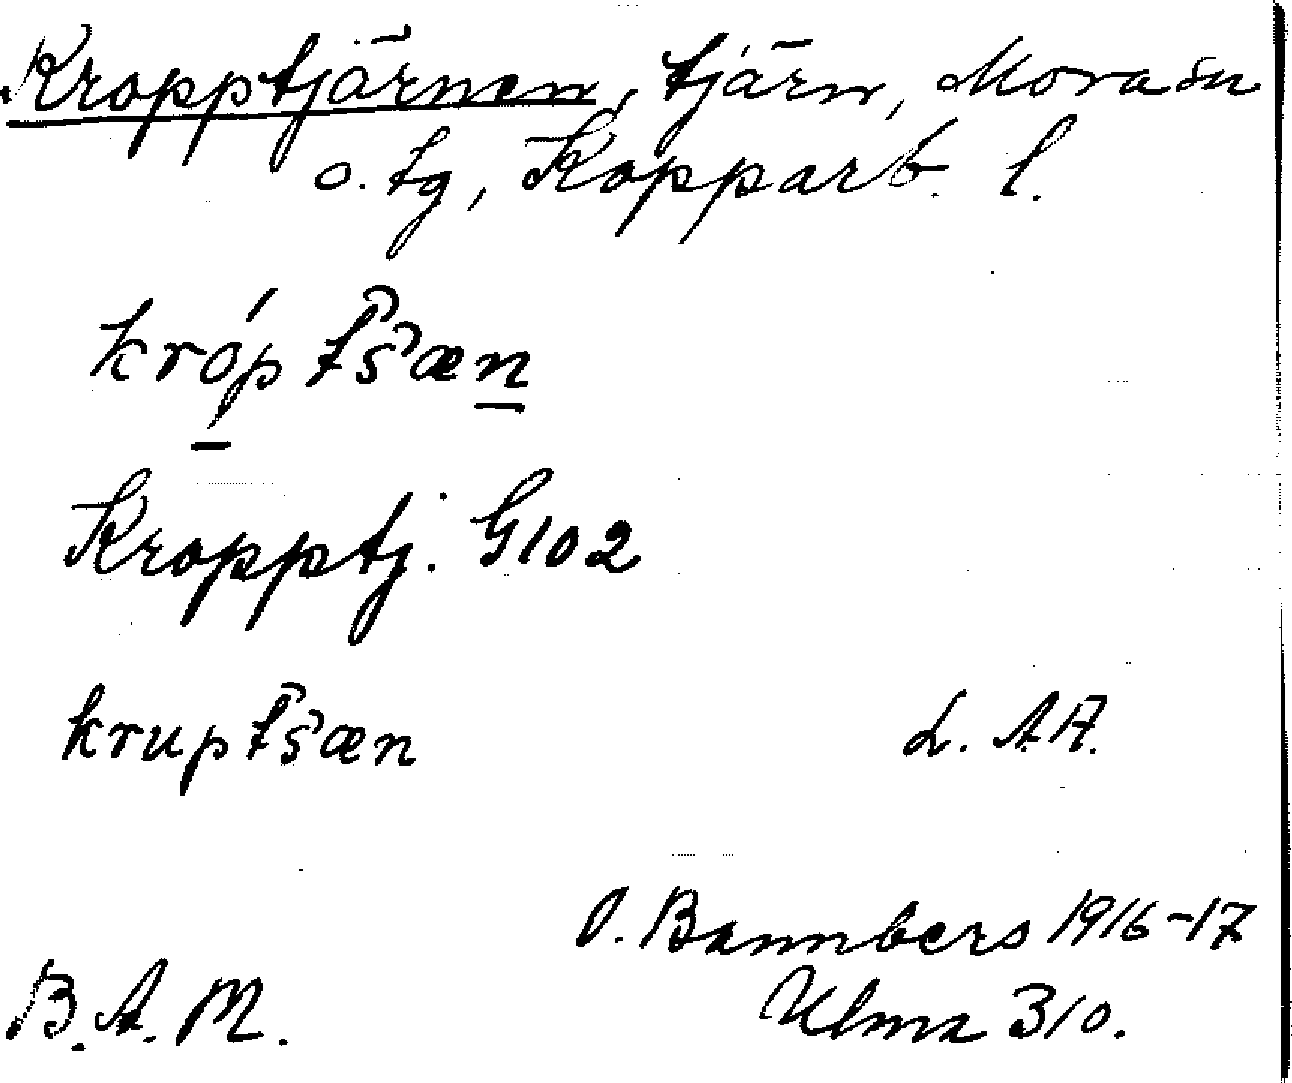 Kropptjärnen, tjärn, Mora sn
o. tg, Kopparb. l.
krópts̑æn
Kropptj. G102
krupts̑æn
L. A A.
O. Bannbers 1916-17
B. A. M.
Ulma 310.